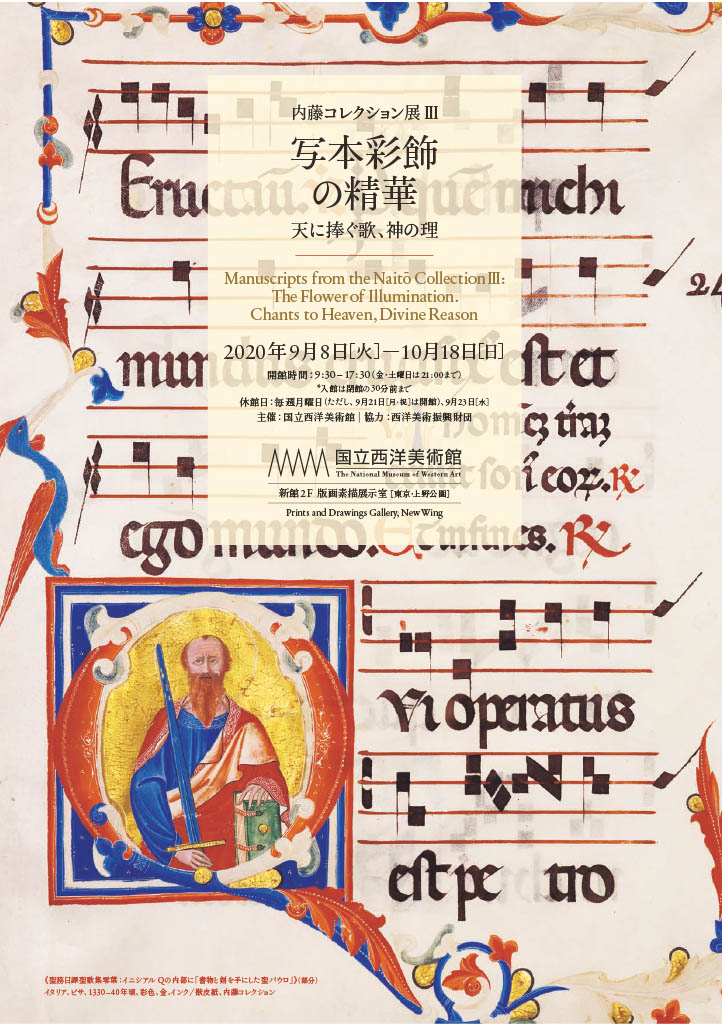 内藤コレクション展 III
写本彩飾
の精華
天に捧ぐ歌、神の理
Manuscripts from the Naitō Collection III:
The Flower of Illumination.
Chants to Heaven, Divine Reason
2020年9月8日[火]—10月18日[日]
開館時間:9:30–17:30(金・土曜日は21:00まで)
*入館は閉館の30分前まで
休館日:毎週月曜日(ただし、9月21日[月・祝]は開館)、9月23日[水]
主催:国立西洋美術館|協力:西洋美術振興財団
国立西洋美術館
The National Museum of Western Art
新館2F 版画素描展示室 [東京・上野公園]
Prints and Drawings Gallery, New Wing
Eructau. Quē michi
mun est et
cor. R
ego mundo. Et infines. R
Vi operatus
est pe tro
《聖務日課聖歌集零葉:イニシアルQの内部に「書物と剣を手にした聖パウロ」》(部分)
イタリア、ピサ、1330–40年頃、彩色、金、インク/獣皮紙、内藤コレクション